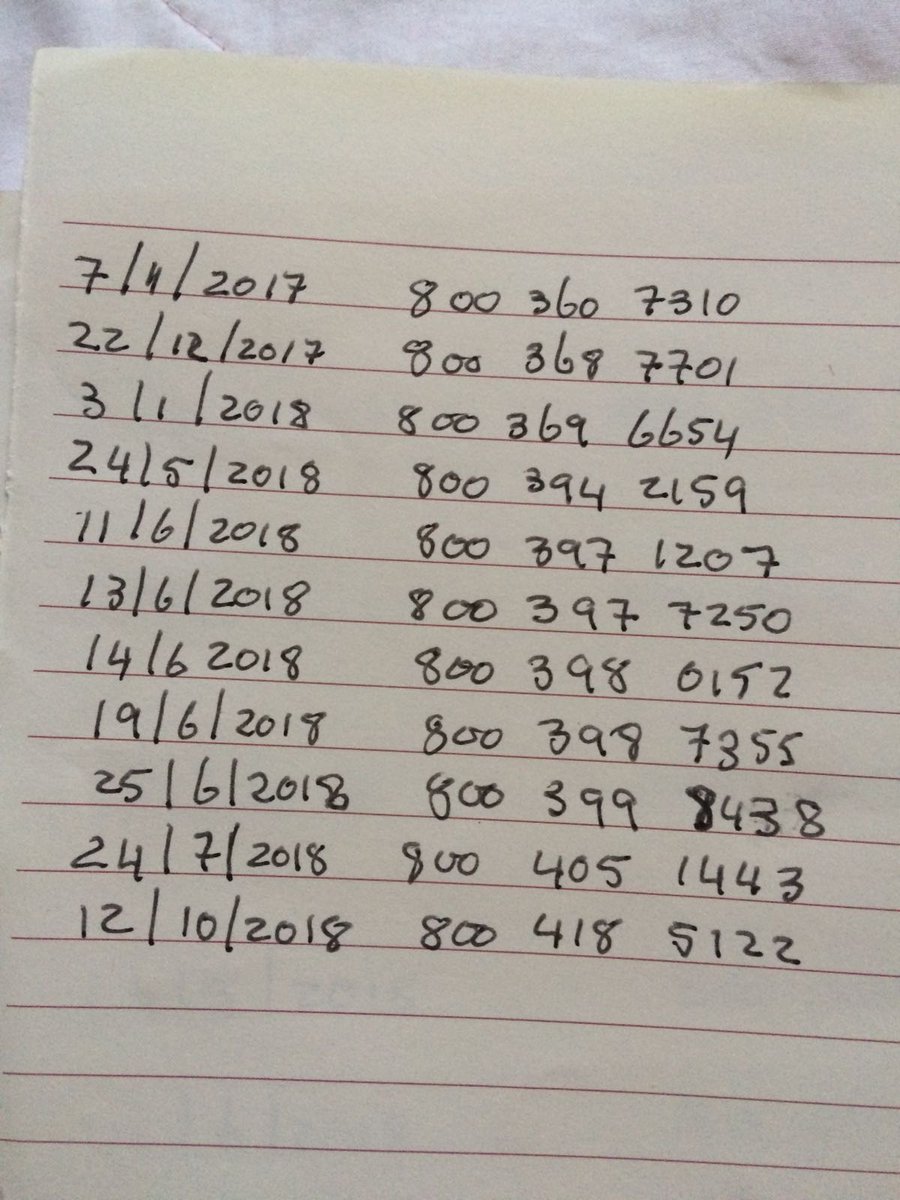 7/11/2017 800 360 7310
22/12/2017 800 368 7701
3/1/2018 800 369 6654
24/5/2018 800 394 2159
11/6/2018 800 397 1207
13/6/2018 800 397 7250
14/6 2018 800 398 0152
19/6/2018 800 398 7355
25/6/2018 800 399 8438
24/7/2018 800 405 1443
12/10/2018 800 418 5122